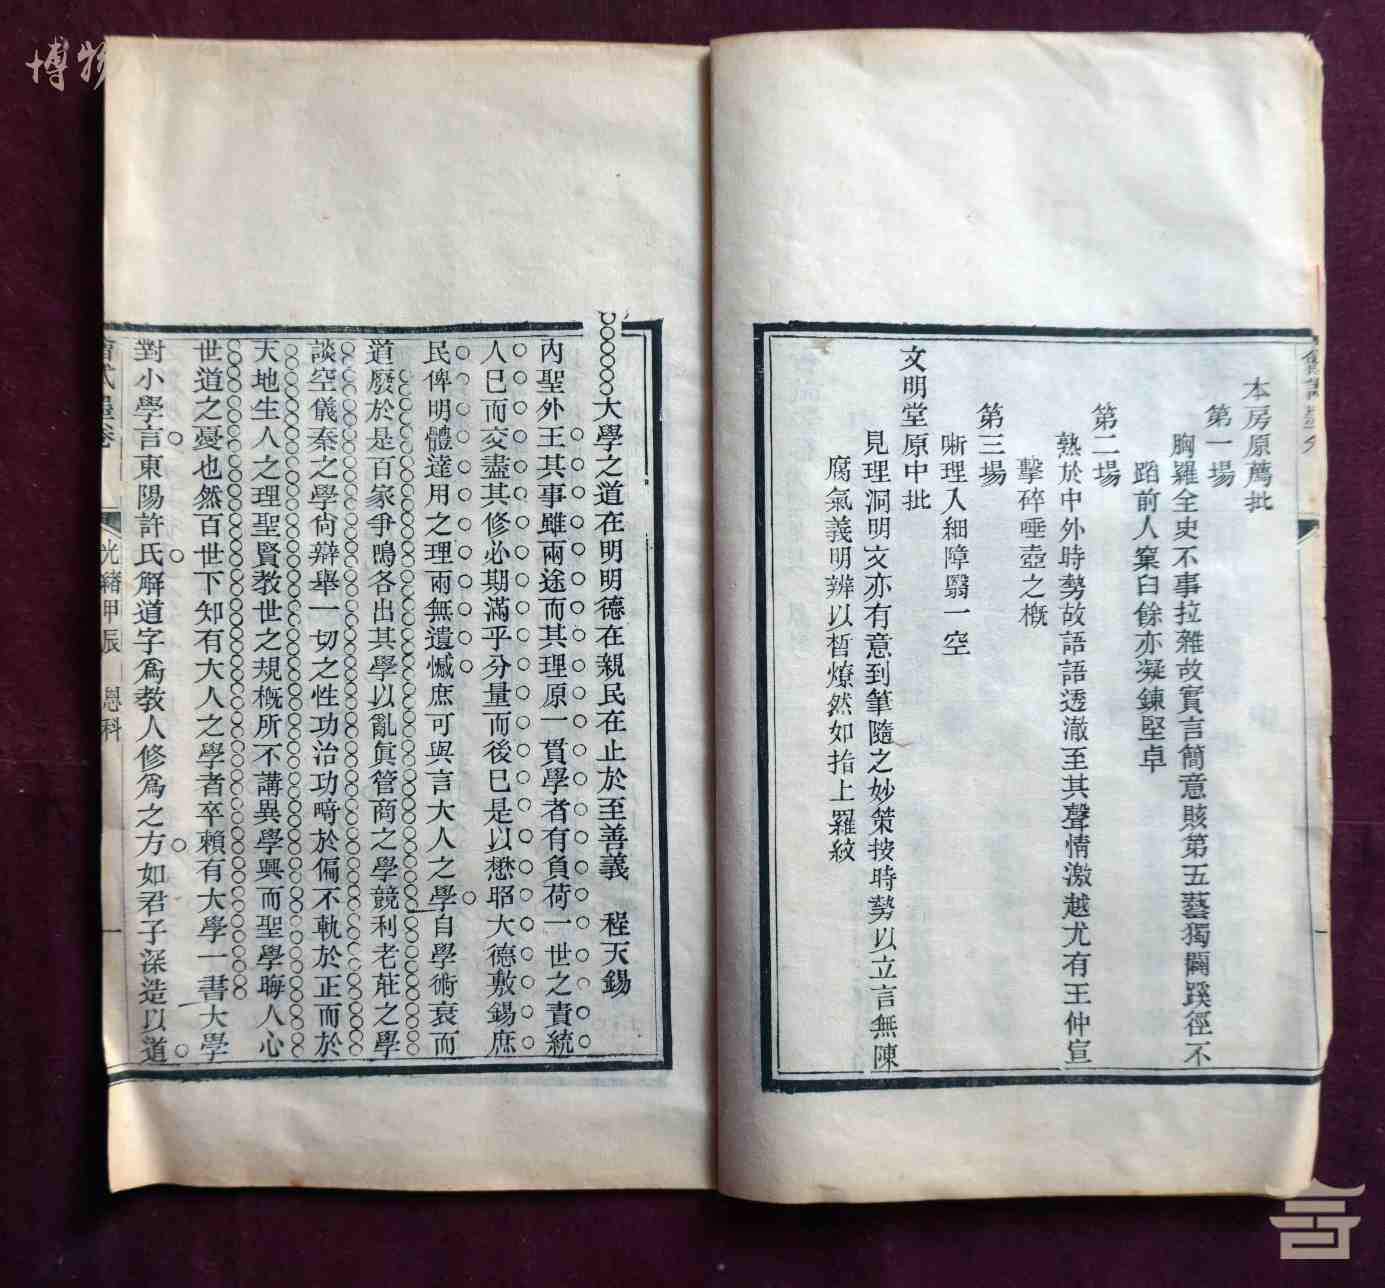 博物
會試墨卷
本房原薦批
第一場
胸羅全史不事拉雜故實言簡意賅第五藝獨闢蹊徑不
蹈前人窠臼餘亦凝鍊堅卓
第二場
熟於中外時勢故語語透澈至其聲情激越尤有王仲宣
擊碎唾壺之概
第三場
晰理入細障翳一空
文明堂原中批
見理洞明文亦有意到筆隨之妙策按時勢以立言無陳
腐氣義明辨以晳燎然如指上羅紋
大學之道在明明德在親民在止於至善義 程天錫
內聖外王其事雖兩途而其理原一貫學者有負荷一世之責統
人己而交盡其修必期滿乎分量而後已是以懋昭大德敷錫庶
民俾明體達用之理兩無遺憾庶可與言大人之學自學術衰而
道廢於是百家爭鳴各出其學以亂眞管商之學競利老莊之學
談空儀秦之學尙辯舉一切之性功治功畸於偏不軌於正而於
天地生人之理聖賢教世之規概所不講異學興而聖學晦人心
世道之憂也然百世下知有大人之學者卒賴有大學一書大學
對小學言東陽許氏解道字爲教人修爲之方如君子深造以道
會試墨卷 光緒甲辰 恩科 一